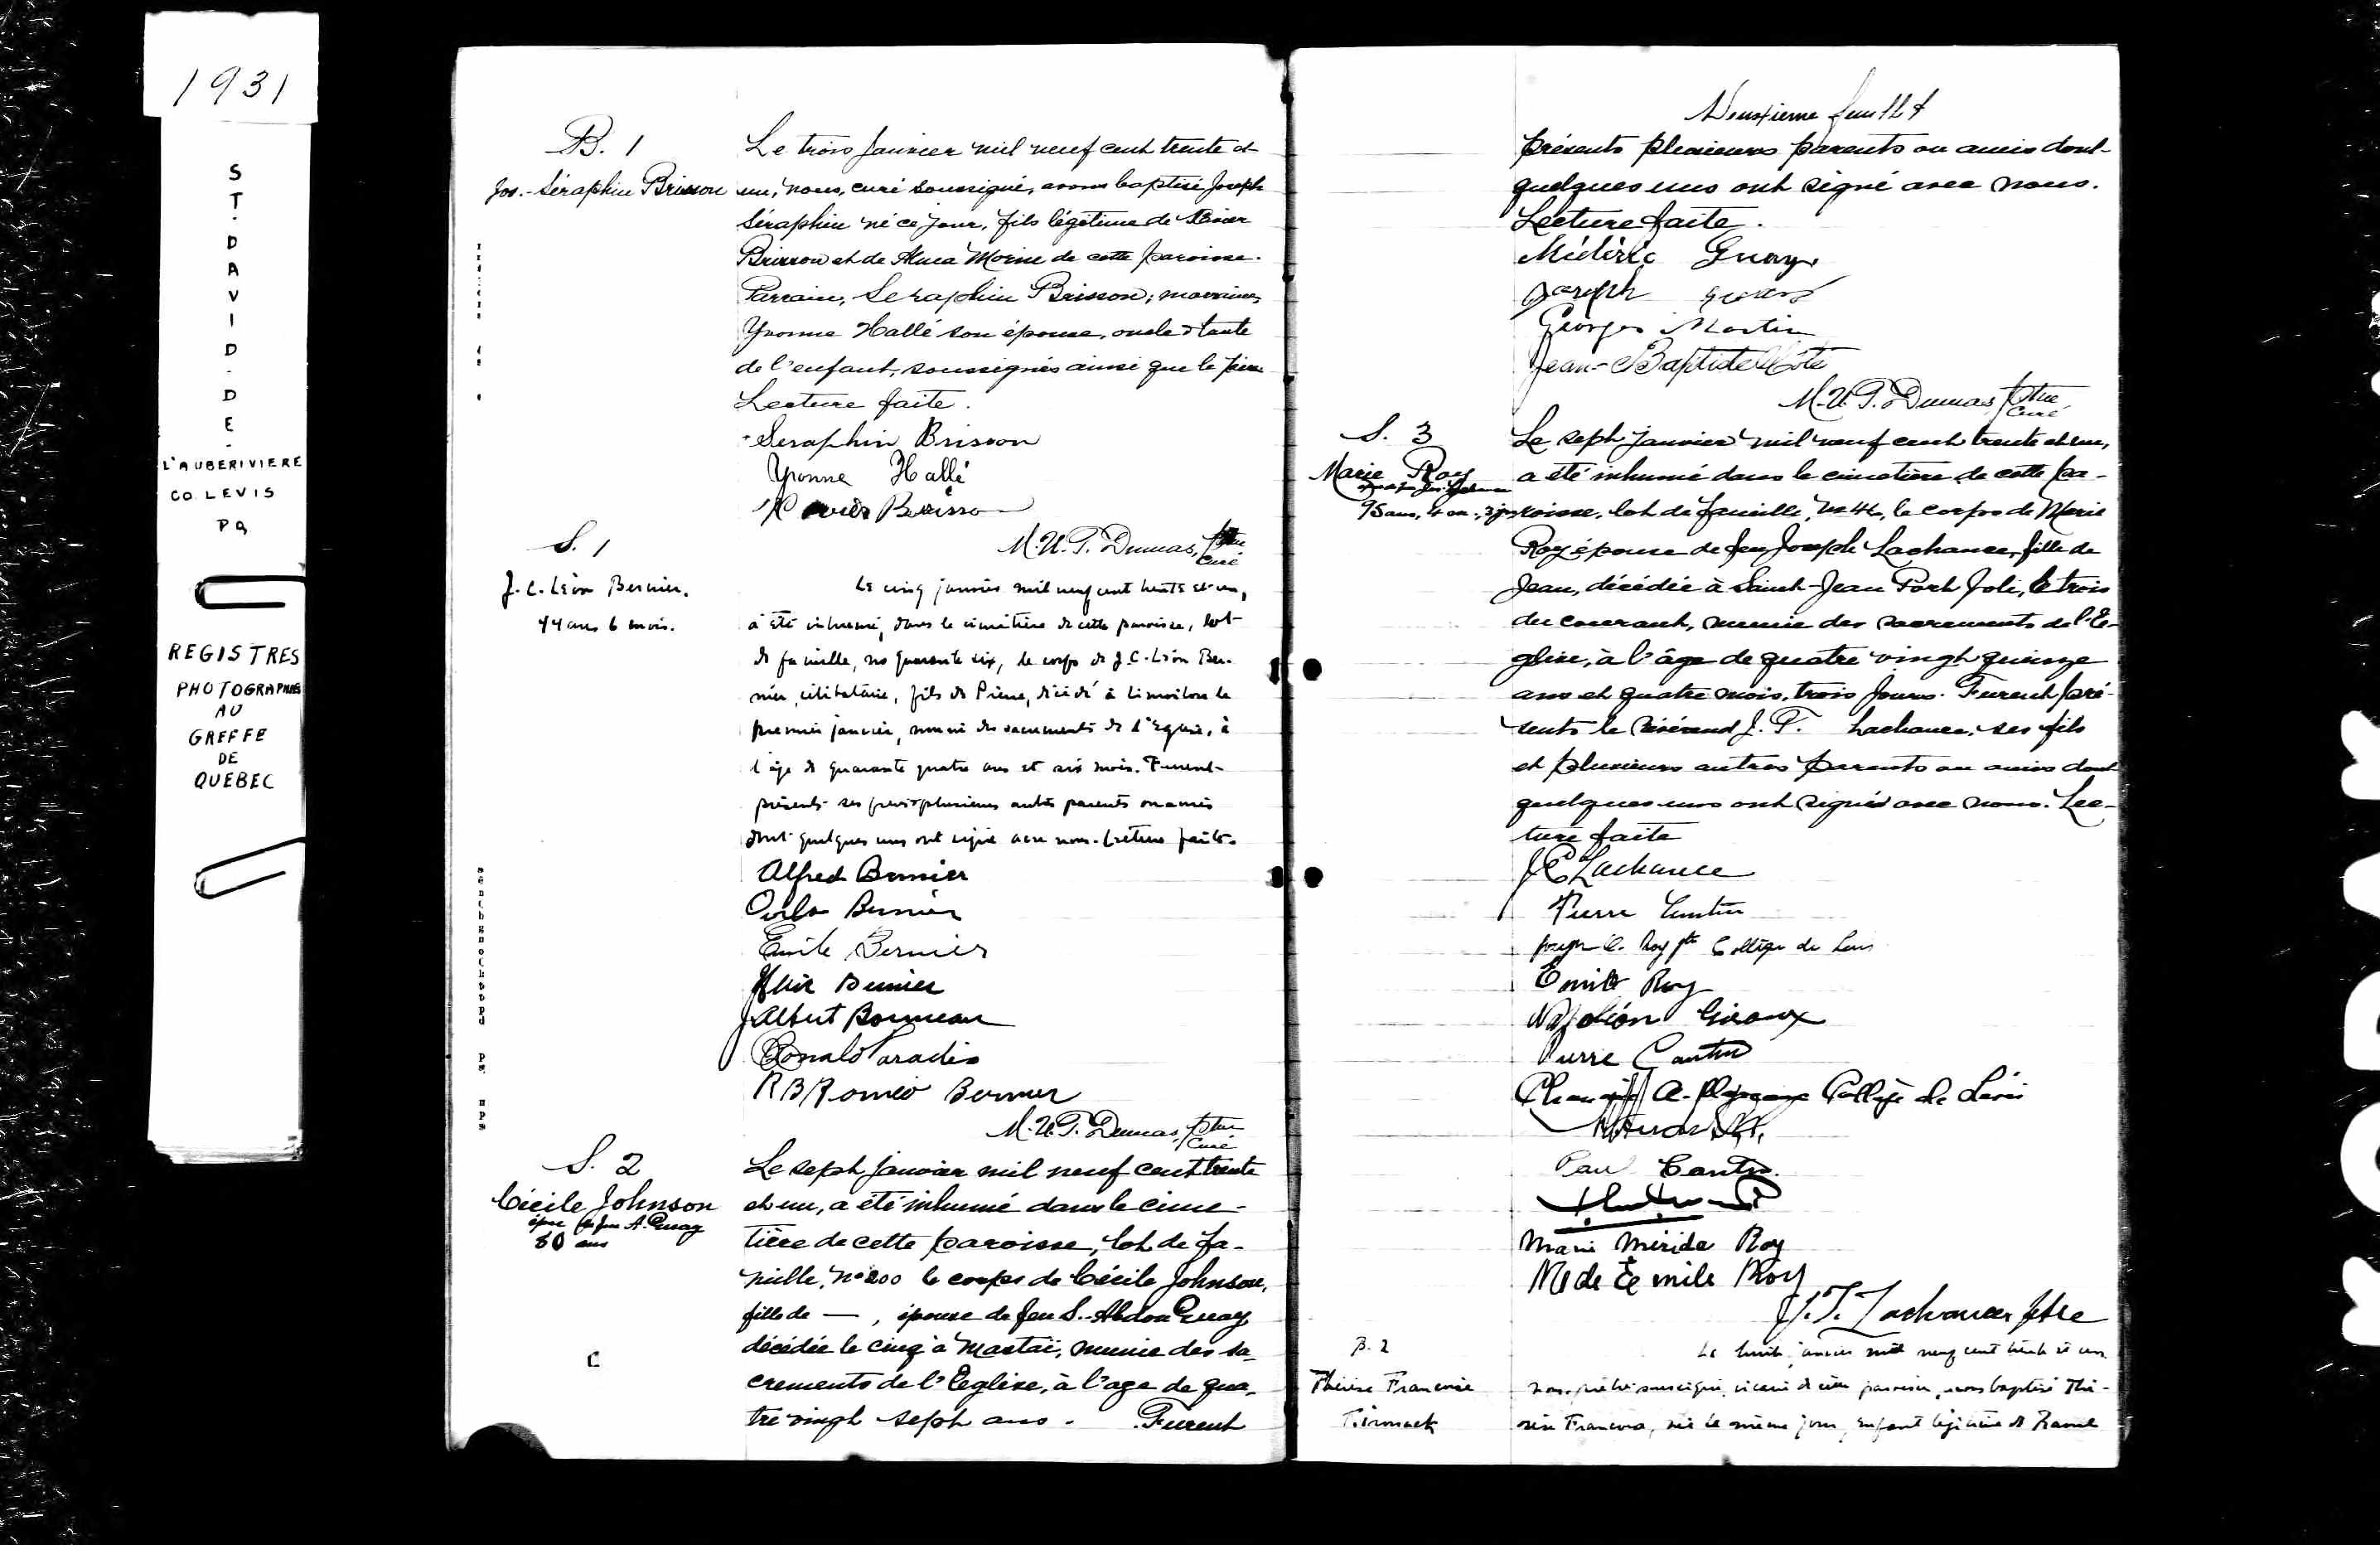 1931
ST. DAVID-DE-
L'AUBERIVIERE
CO LEVIS
PQ
REGISTRES
PHOTOGRAPHIES
AU
GREFFE
DE
QUEBEC
B. 1
Jos.-Séraphin Brisson
Le trois Janvier mil neuf cent trente et
un, nous, curé soussigné, avons baptisé Joseph
Séraphin né ce jour, fils légitime de
Brisson et de Alma Morin de cette paroisse.
Parrain, Seraphin Brisson; marraine,
Yvonne Hallé son épouse, oncle & tante
de l'enfant, soussignés ainsi que le père
Lecture faite.
Seraphin Brisson
Yvonne Hallé
Xavier Brisson
M.U.T. Dumas, ptre
curé
S. 1
J. C. Léon Bernier.
44 ans 6 mois.
Le cinq janvier mil neuf cent trente et un,
a été inhumé, dans le cimetière de cette paroisse, lot
de famille, no quarante six, le corps de J. C. Léon Ber-
nier, célibataire, fils de Pierre, décédé à Limoilou le
premier janvier, muni des sacrements de l'Eglise, à
l'âge de quarante quatre ans et six mois. Furent
présents ses frères & plusieurs autres parents ou amis
dont quelques uns ont signé avec nous. Lecture faite.
Alfred Bernier
Bernier
Emile Bernier
Bernier
Albert Bonneau
Romalo Paradis
R B Roméo Bernier
M.U.T. Dumas, ptre
curé
S. 2
Cécile Johnson
épse de feu A. Guay
80 ans
Le sept janvier mil neuf cent trente
et un, a été inhumé dans le cime-
tière de cette paroisse, lot de fa-
mille, no 200 le corps de Cécile Johnson,
fille de — , épouse de feu S.-Abdon Guay
décédée le cinq à Mastaï, munie des sa-
crements de l'Eglise, à l'age de qua-
tre vingt sept ans. Furent
C
Deuxième feuillet
présents plusieurs parents ou amis dont
quelques uns ont signé avec nous.
Lecture faite.
Médéric Guay
Joseph
Georges Martin
Jean-Baptiste Côté
M.U.T. Dumas, ptre
Curé
S. 3
Marie Roy
95 ans, 4 m., 3 jrs
Le sept janvier mil neuf cent trente et un,
a été inhumé dans le cimetière de cette pa-
roisse, lot de famille, no 44, le corps de Marie
Roy épouse de feu Joseph Lachance, fille de
Jean, décédée à Saint-Jean Port Joli, le trois
du courant, munie des sacrements de l'E-
glise, à l'âge de quatre vingt quinze
ans et quatre mois, trois jours. Furent pré-
sents le Révérend J. T. Lachance, ses fils
et plusieurs autres parents ou amis dont
quelques uns ont signé avec nous. Lec-
ture faite
Lachance
Pierre Cantin
Roy ptre Collège de Lévis
Emile Roy
Napoléon Giroux
Pierre Cantin
Collège de Lévis
Paul Cantin
Marie Mérida Roy
Mde Emile Roy
J. T. Lachance ptre
B. 2
Thérèse Françoise
Le huit janvier mil neuf cent trente et un
nous, prêtre soussigné, vicaire de cette paroisse, avons baptisé Thé-
rèse Françoise, née le même jour, enfant légitime de Raoul